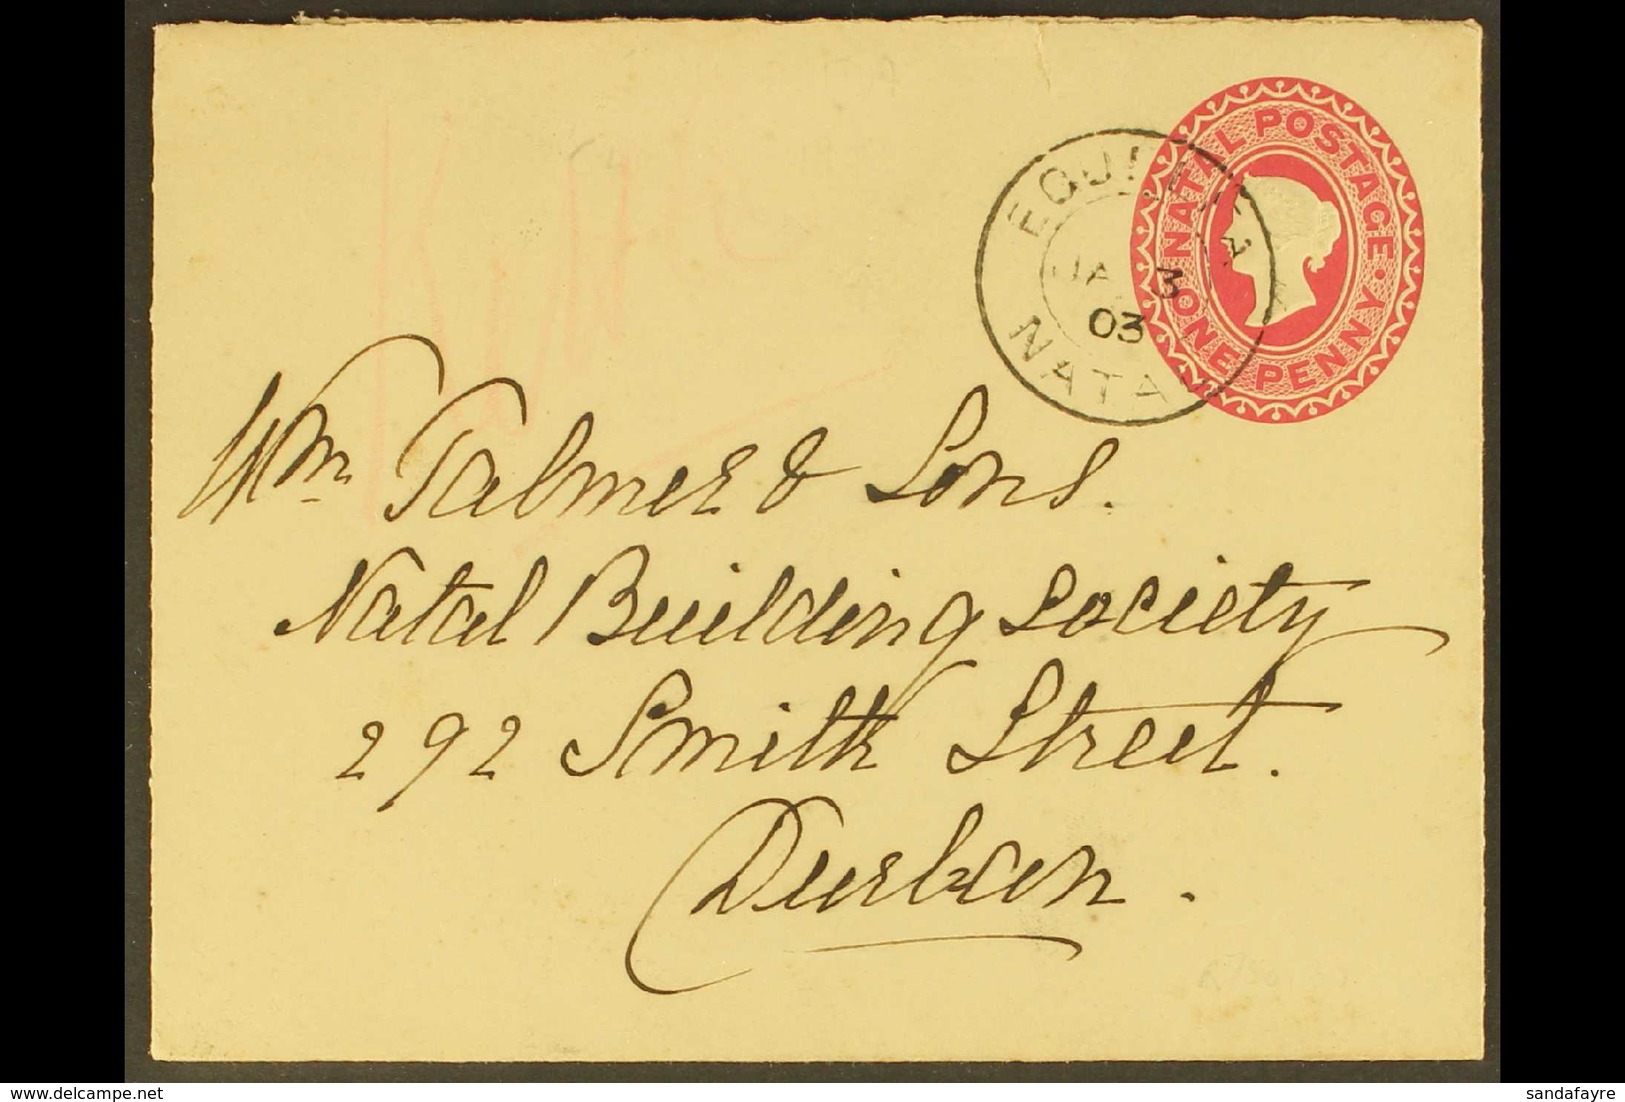 NATAL POSTAGE.
ONE PENNY.
JA 3
03
NATAL
Wm Palmer & Sons.
Natal Building Society
292 Smith Street.
Durban.
sandafayre